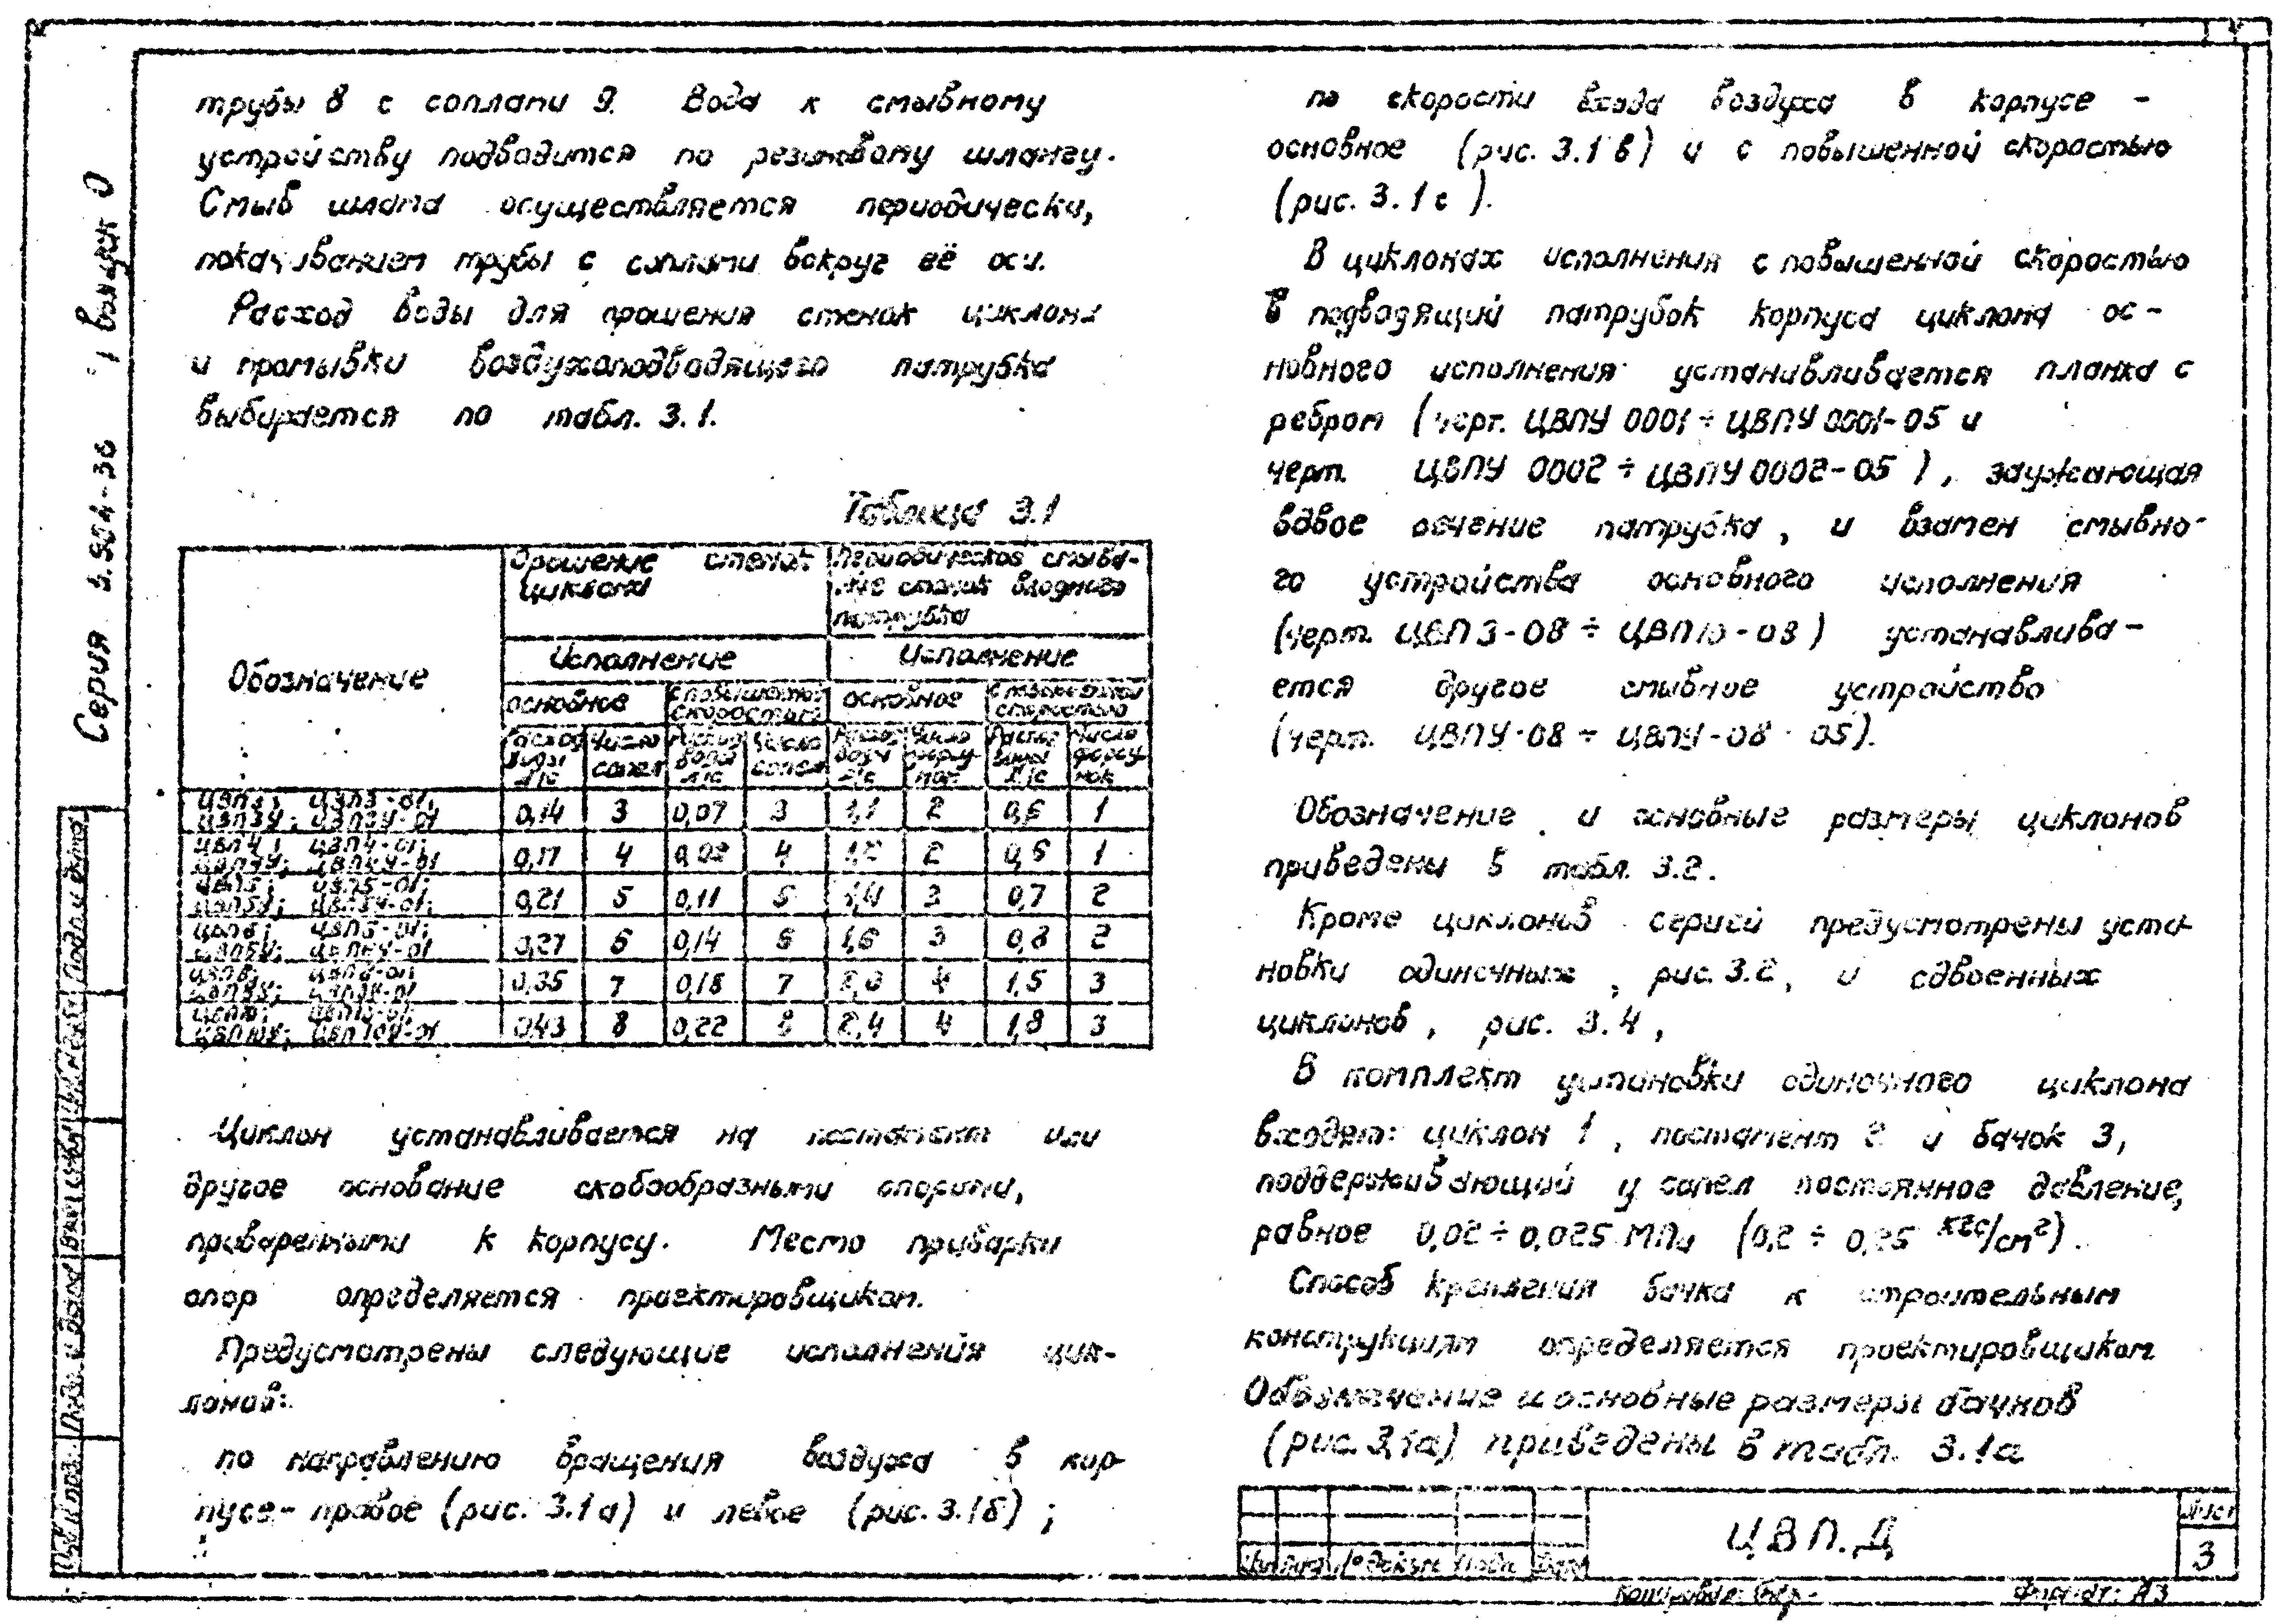 трубы 8 с соплами 9. Вода к смывному
устройству подводится по резиновому шлангу.
Смыв шлама осуществляется периодически,
покачиванием трубы с соплами вокруг её оси.
Расход воды для орошения стенок циклона
и промывки воздухоподводящего патрубка
выбирается по табл. 3.1.
Таблица 3.1
Обозначение
Орошение стенок
циклона
Периодическое смыва-
ние стенок входного
патрубка
Исполнение
Исполнение
основное
с повышенной
скоростью
основное
с повышенной
скоростью
Расход
воды
л/с
Число
сопел
Расход
воды
л/с
Число
сопел
Расход
воды
л/с
Число
форсу-
нок
Расход
воды
л/с
Число
форсу-
нок
ЦВП3; ЦВП3-01;
ЦВП3У; ЦВП3У-01
0,14 3 0,07 3 1,1 2 0,6 1
ЦВП4; ЦВП4-01;
ЦВП4У; ЦВП4У-01
0,17 4 4 1,2 2 0,6 1
ЦВП5; ЦВП5-01;
ЦВП5У; ЦВП5У-01;
0,21 5 0,11 5 1,4 3 0,7 2
ЦВП6; ЦВП6-01;
ЦВП6У; ЦВП6У-01
0,27 6 0,14 6 1,6 3 0,8 2
ЦВП8; ЦВП8-01;
ЦВП8У; ЦВП8У-01
0,35 7 0,18 7 4 1,5 3
ЦВП10; ЦВП10-01;
ЦВП10У; ЦВП10У-01
0,43 8 0,22 8 2,4 4 1,8 3
Циклон устанавливается на постамент или
другое основание скобообразными опорами,
приваренными к корпусу. Место приварки
опор определяется проектировщиком.
Предусмотрены следующие исполнения цик-
лонов:
по направлению вращения воздуха в кор-
пусе - правое (рис. 3.1а) и левое (рис. 3.1б) ;
по скорости входа воздуха в корпусе -
основное (рис. 3.1в) и с повышенной скоростью
(рис. 3.1с ).
В циклонах исполнения с повышенной скоростью
в подводящий патрубок корпуса циклона ос-
новного исполнения устанавливается планка с
ребром (черт. ЦВПУ 0001 ÷ ЦВПУ 0001-05 и
черт. ЦВПУ 0002 ÷ ЦВПУ 0002-05 ), заужающая
вдвое сечение патрубка, и взамен смывно-
го устройства основного исполнения
(черт. ЦВП3-08 ÷ ЦВП10-08) устанавлива-
ется другое смывное устройство
(черт. ЦВПУ-08 ÷ ЦВПУ-08-05).
Обозначение и основные размеры циклонов
приведены в табл. 3.2.
Кроме циклонов серией предусмотрены уста-
новки одиночных, рис. 3.2, и сдвоенных
циклонов, рис. 3.4,
В комплект установки одиночного циклона
входят: циклон 1, постамент 2 и бачок 3,
поддерживающий у сопел постоянное давление,
равное 0,02 ÷ 0,025 МПа (0,2 ÷ 0,25 кгс/см²).
Способ крепления бачка к строительным
конструкциям определяется проектировщиком
Обозначение и основные размеры бачков
(рис. 3.1а) приведены в табл. 3.1а
ЦВП.Д
Лист
3
Изм Лист № докум. Подп. Дата
Копировал:
Формат: А3
Серия 5.904-36 выпуск 0
Подп. и дата
Взам. инв. №
Подп. и дата